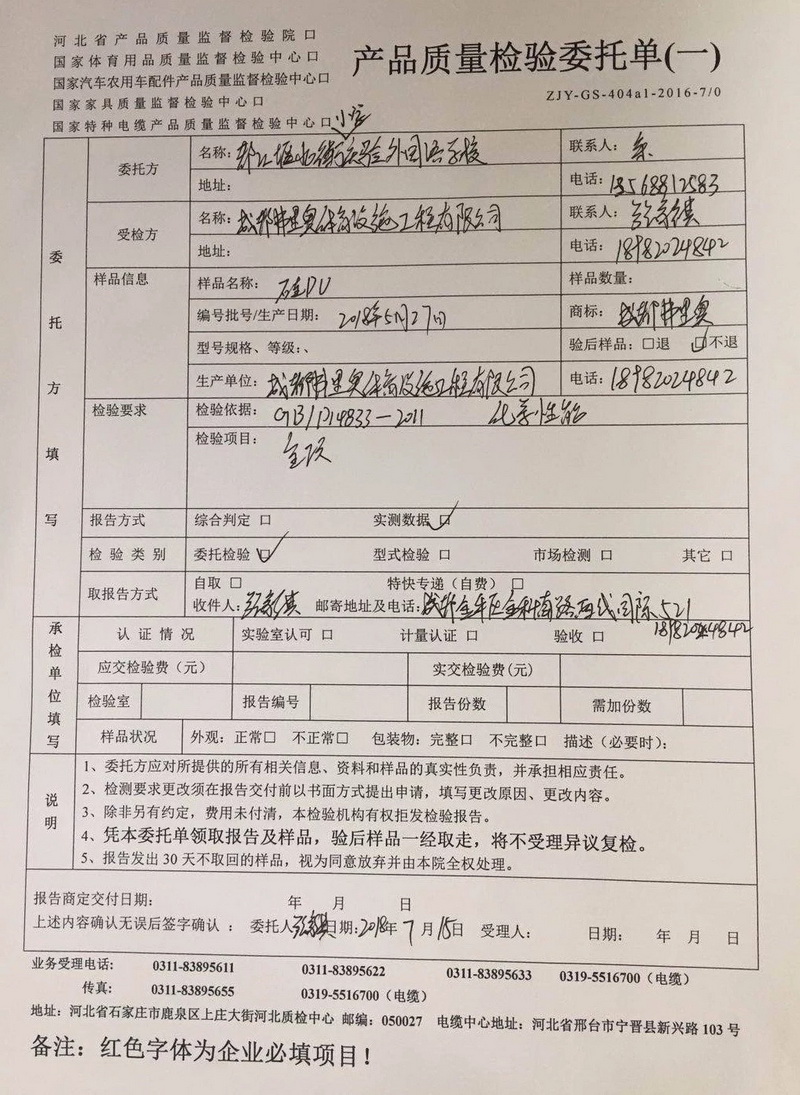 河北省产品质量监督检验院口
国家体育用品质量监督检验中心口
国家汽车农用车配件产品质量监督检验中心口
国家家具质量监督检验中心口
国家特种电缆产品质量监督检验中心口
产品质量检验委托单(一)
ZJY-GS-404a1-2016-7/0
委托方填写
委托方
名称: 都江堰北街实验外国语学校
小学
联系人:
地址:
电话: 13568812583
受检方
名称: 成都韩里奥体育设施工程有限公司
联系人:
地址:
电话: 18982024842
样品信息
样品名称: 硅PU
样品数量:
编号批号/生产日期: 2018年5月27日
商标: 成都韩里奥
型号规格、等级:、
验后样品: 口退 口不退
生产单位: 成都韩里奥体育设施工程有限公司
电话: 18982024842
检验要求
检验依据: GB/T14833-2011 化学性能
检验项目: 全项
报告方式
综合判定 口 实测数据 口
检验类别
委托检验 口 型式检验 口 市场检测 口 其它 口
取报告方式
自取 口 特快专递（自费）口
收件人: 邮寄地址及电话: 成都金牛区金科南路 国际521
18982024842
承检单位填写
认证情况 实验室认可 口 计量认证 口 验收 口
应交检验费（元） 实交检验费(元)
检验室 报告编号 报告份数 需加份数
样品状况 外观: 正常口 不正常口 包装物: 完整口 不完整口 描述（必要时）;
说明
1、委托方应对所提供的所有相关信息、资料和样品的真实性负责，并承担相应责任。
2、检测要求更改须在报告交付前以书面方式提出申请，填写更改原因、更改内容。
3、除非另有约定，费用未付清，本检验机构有权拒发检验报告。
4、凭本委托单领取报告及样品，验后样品一经取走，将不受理异议复检。
5、报告发出30天不取回的样品，视为同意放弃并由本院全权处理。
报告商定交付日期: 年 月 日
上述内容确认无误后签字确认: 委托人 日期: 2018年7月15日 受理人: 日期: 年 月 日
业务受理电话: 0311-83895611 0311-83895622 0311-83895633 0319-5516700（电缆）
传真: 0311-83895655 0319-5516700（电缆）
地址: 河北省石家庄市鹿泉区上庄大街河北质检中心 邮编: 050027 电缆中心地址: 河北省邢台市宁晋县新兴路103号
备注: 红色字体为企业必填项目!